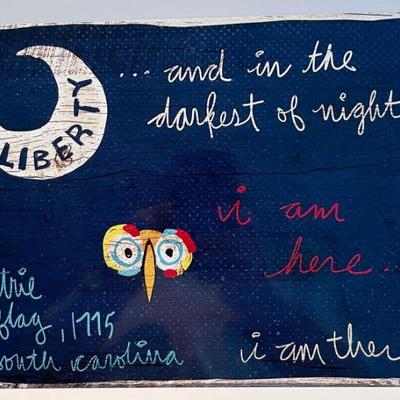 LIBERTY
...and in the
darkest of night
i am
here..
trie
flag, 1775
south carolina
i am ther